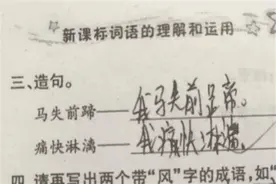 新课标词语的理解和运用
三、造句。
马失前蹄——我马失前足帝。
痛快淋漓——我痛快淋漓。
四、请再写出两个带“风”字的成语,如“